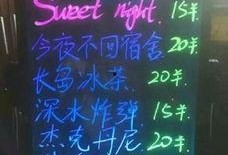 Sweet night. 15羊
今夜不回宿舍 20羊
长岛冰茶 20羊
深水炸弹 15羊
杰克丹尼 20羊